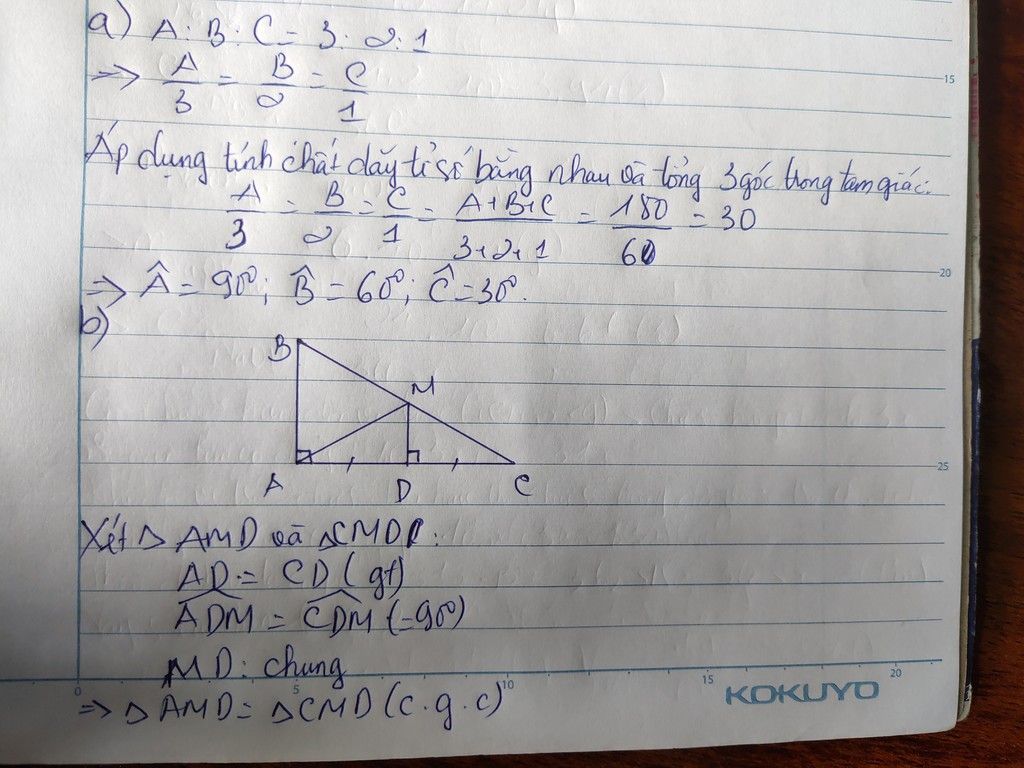 a) A : B : C = 3 : 2 : 1
=> A/3 = B/2 = C/1
Áp dụng tính chất dãy tỉ số bằng nhau và tổng 3 góc trong tam giác:
A/3 = B/2 = C/1 = A+B+C/3+2+1 = 180/6 = 30
=> Â = 90°; B̂ = 60°; Ĉ = 30°.
b)
B
M
A D C
Xét Δ AMD và Δ CMD:
AD = CD (gt)
ADM = CDM (=90°)
MD: chung
=> Δ AMD = Δ CMD (c.g.c)
15
20
25
0 5 10 15 20
KOKUYO